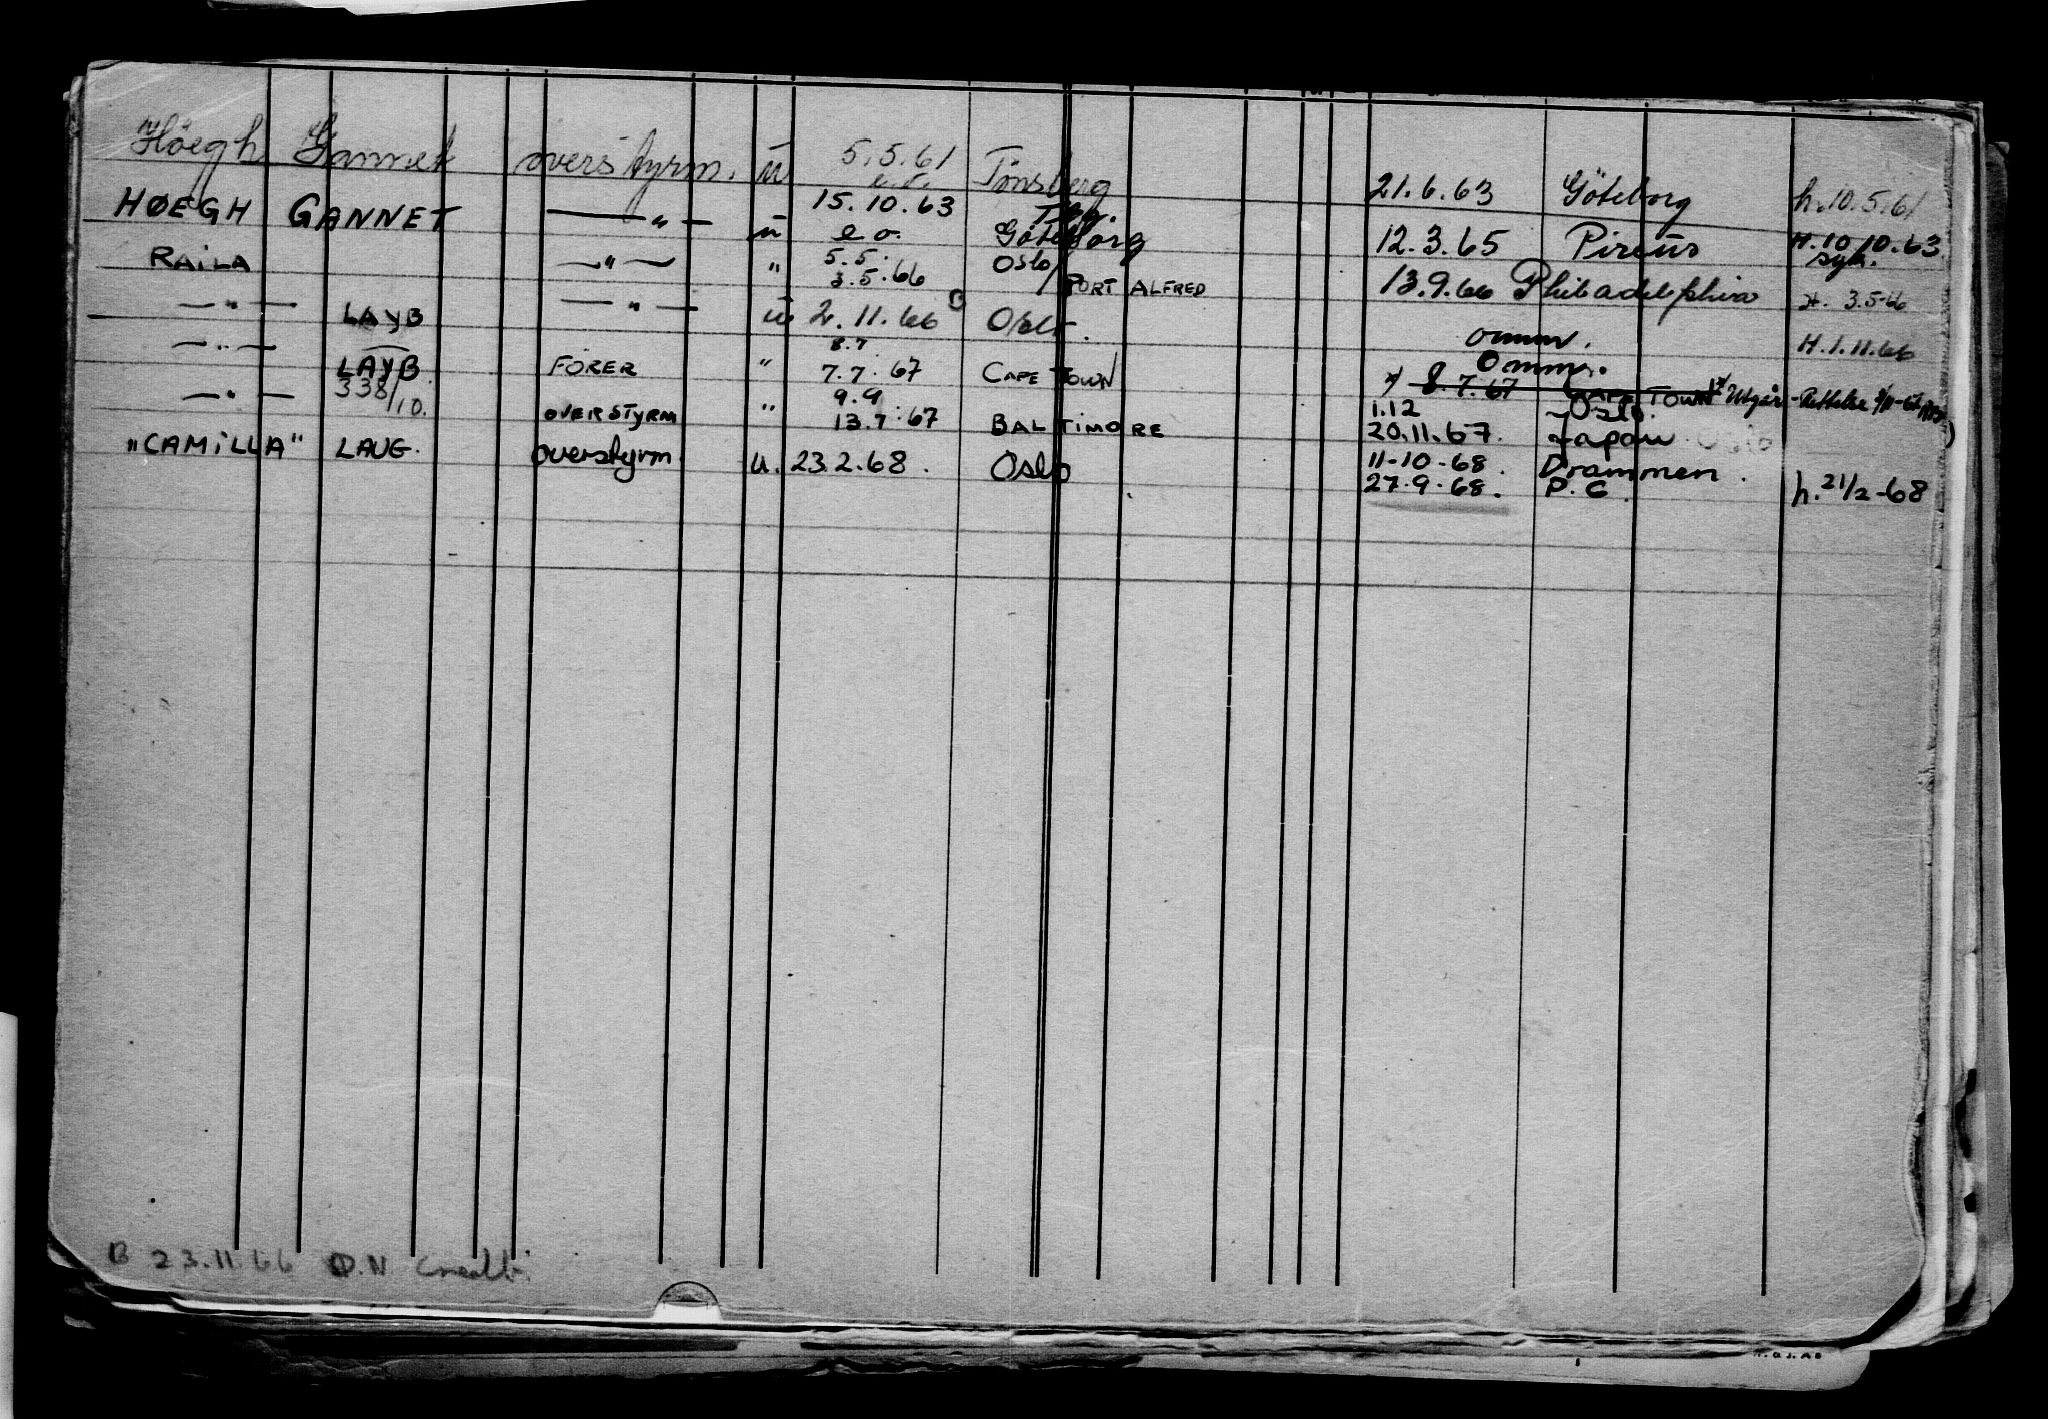 Höegh Gannet overstyrm. u 5.5.61 Tönsberg 21.6.63 Göteborg h.10.5.61
e.o. Tbg.
HØEGH GANNET —〃— u 15.10.63 Göteborg 12.3.65 Pireus H.10.10.63
e.o. syk.
RAILA —〃— 〃 5.5. Oslo/
3.5.66 PORT ALFRED 13.9.66 Philadelphia H. 3.5.66
—〃— LAYB —〃— u 2.11.66 Oslo. omm. H.1.11.66
8.7
—〃— LAYB FÖRER 〃 7.7.67 CAPE TOWN Omm.
8.7.67 CAPE TOWN Utgår - Rettelse
—〃— 338/10. OVERSTYRM 〃 9.9 1.12 Oslo.
13.7.67 BALTIMORE 20.11.67. Japan. Oslo
"CAMILLA" LAUG. overstyrm. u. 23.2.68. Oslo 11-10-68. Drammen. h. 21/2-68
27.9.68. P.C.
B 23.11.66 O.N.